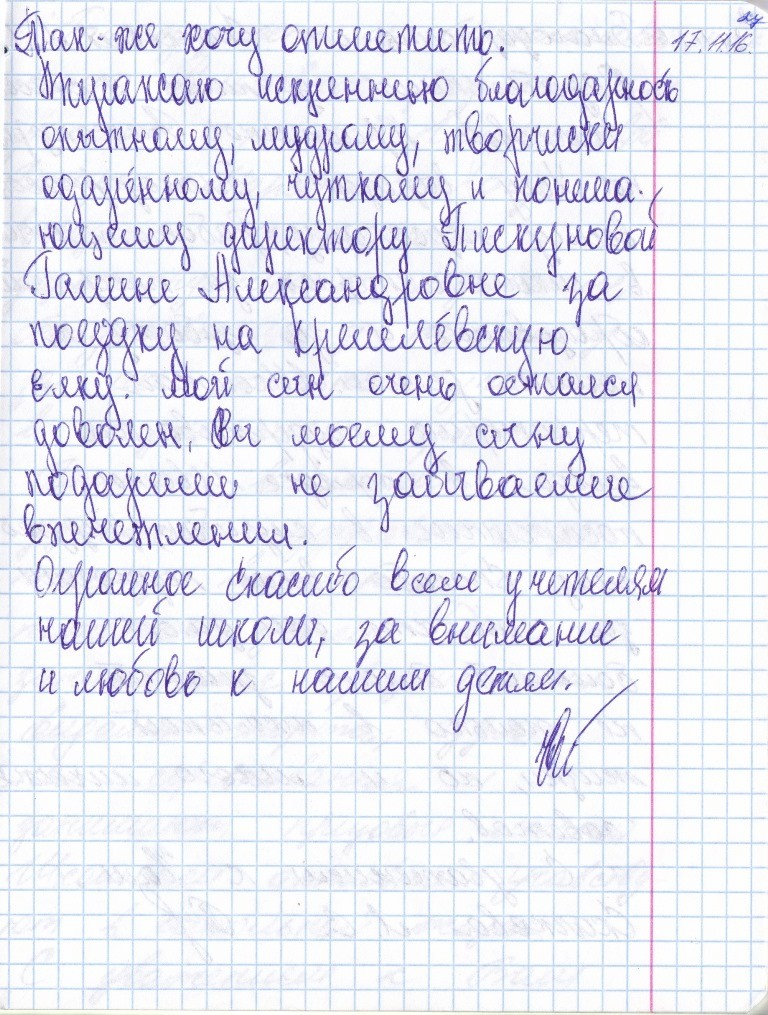 24
17.11.16.
Так-же хочу отметить.
Выражаю искреннюю благодарность
опытному, мудрому, творчиски
одарённому, чуткому и понима-
ющему директору Пискуновой
Галине Александровне за
поездку на кремлёвскую
ёлку. Мой сын очень остался
доволен, Вы моему сыну
подарили не забываемые
впечетления.
Огромное спасибо всем учителям
нашей школы, за внимание
и любовь к нашим детям.